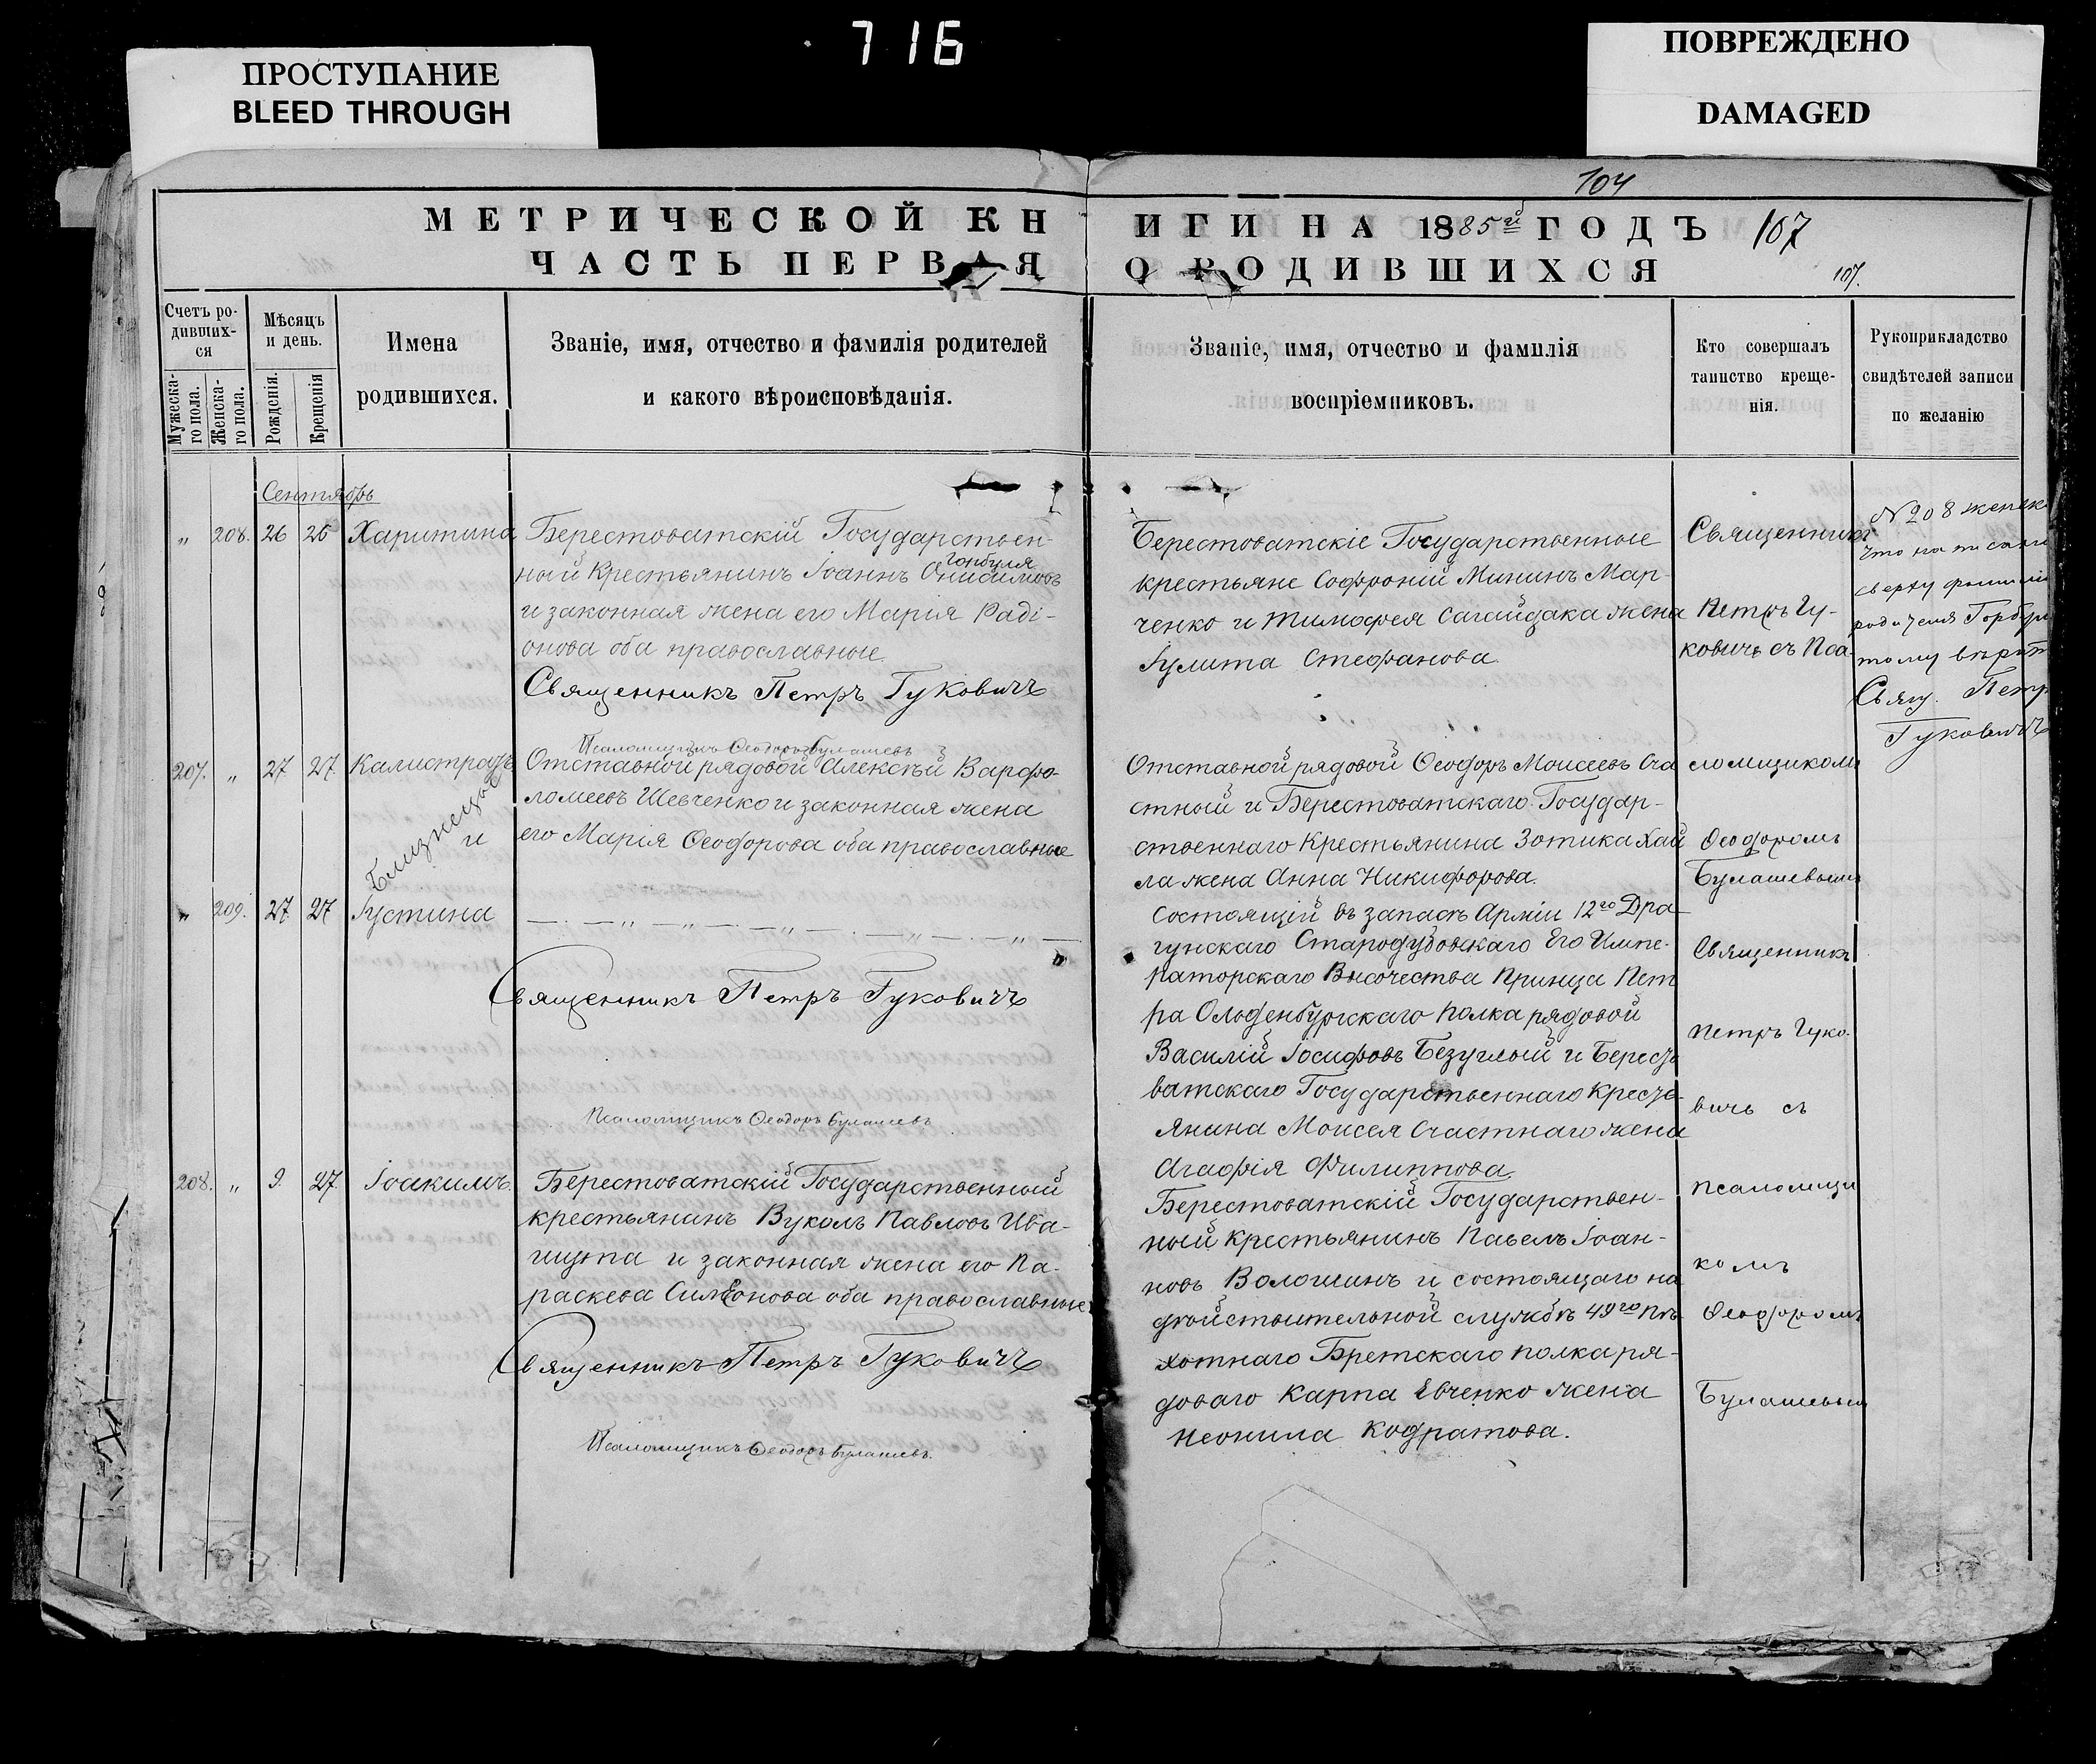 716
ПРОСТУПАНИЕ
BLEED THROUGH
ПОВРЕЖДЕНО
DAMAGED
104
МЕТРИЧЕСКОЙ КН
ИГИ НА 1885й ГОДЪ 107
ЧАСТЬ ПЕРВАЯ
О РОДИВШИХСЯ
107.
Счетъ ро-
дивших-
ся
Мужеска-
го пола.
Женска-
го пола.
Мѣсяцъ
и день.
Рожденія.
Крещенія
Имена
родившихся.
Званіе, имя, отчество и фамилія родителей
и какого вѣроисповѣданія.
Званіе, имя, отчество и фамилія
воспріемниковъ.
Кто совершалъ
таинство креще-
нія.
Рукоприкладство
свидѣтелей записи
по желанію
Сентябрь
„ 208. 26 26 Харитина
Берестоватскій Государствен-
Горбуля
ный Крестьянинъ Іоаннъ Онисимовъ
и законная жена его Марія Раді-
онова оба православные
Священникъ Петръ Гуковичъ
Псаломщикъ Ѳеодоръ Булашевъ
Берестоватскіе Государственные
крестьяне Софроній Мининъ Мар-
ченко и Тимофея Сагайдака жена
Іулита Стефанова
Священникъ
Петръ Гу-
ковичъ съ Пса-
№ 208 женск
что написан
сверху фамилі
родителя Горбул
тому вѣрит
Свящ. Петр
Гуковичъ
207. „ 27 27 Калистратъ
Близнецы
и
Отставной рядовой Алексѣй Варфо-
ломеевъ Шевченко и законная жена
его Марія Ѳеодорова оба православные
Отставной рядовой Ѳеодоръ Моисеевъ Сча
стный и Берестоватскаго Государ-
ственнаго Крестьянина Зотика Хай
ла жена Анна Никифорова.
ломщикомъ
Ѳеодоромъ
Булашевымъ
„ 209. 27 27 Іустина
Священникъ Петръ Гуковичъ
Псаломщикъ Ѳеодоръ Булашевъ
Состоящій въ запасѣ Арміи 12го Дра-
гунскаго Стародубовскаго Его Импе-
раторскаго Высочества Принца Пет
ра Ольденбургскаго полка рядовой
Василій Іосифовъ Безуглый и Бересто
ватскаго Государственнаго Кресть-
янина Моисея Счастнаго жена
Агафія Филиппова.
Священникъ
Петръ Гуко-
вичъ съ
208. „ 9. 27. Іоакимъ.
Берестоватскій Государственный
крестьянинъ Вуколъ Павловъ Ива-
щупа и законная жена его Па-
раскева Симеонова оба православные
Священникъ Петръ Гуковичъ
Псаломщикъ Ѳеодоръ Булашевъ.
Берестоватскій Государствен-
ный крестьянинъ Павелъ Іоан-
новъ Волошинъ и состоящаго на
дѣйствительной службѣ 49го пѣ-
хотнаго Бретскаго полка ря-
доваго Карпа Евченко жена
Неонила Кодратова.
псаломщи
комъ
Ѳеодоромъ
Булашевым